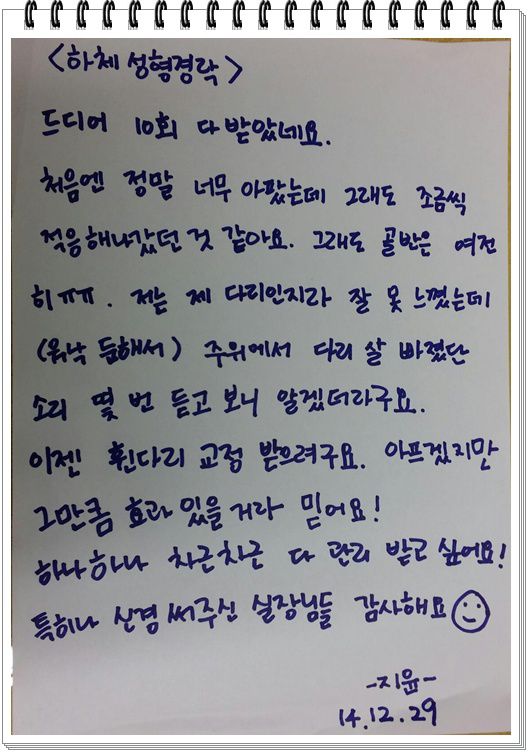 <하체 성형경락>
드디어 10회 다 받았네요.
처음엔 정말 너무 아팠는데 그래도 조금씩
적응해나갔던 것 같아요. 그래도 골반은 여전
히ㅠㅠ. 저는 제 다리인지라 잘 못 느꼈는데
(워낙 둔해서) 주위에서 다리 살 빠졌단
소리 몇 번 듣고 보니 알겠더라구요.
이젠 휜다리 교정 받으려구요. 아프겠지만
그만큼 효과 있을거라 믿어요!
하나하나 차근차근 다 관리 받고 싶어요!
특히나 신경써주신 실장님들 감사해요
-지윤-
14.12.29